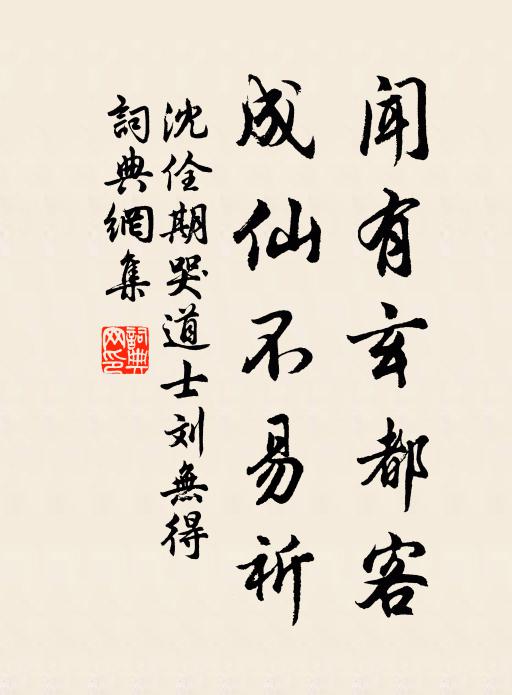 闻有玄都客
成仙不易祈
沈佺期哭道士刘無得
詞典網集
詞典网印